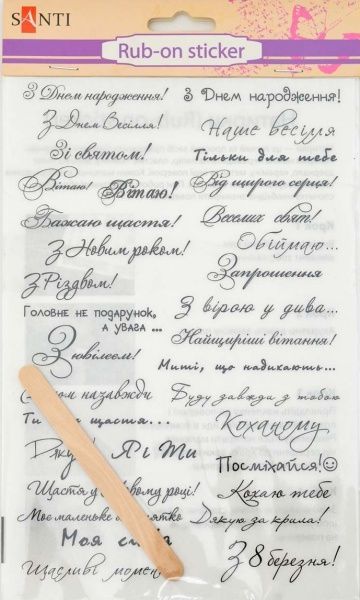 SANTI
Rub-on sticker
З Днем народження!
З Днем народження!
З Днем Весілля!
Наше весілля
Зі святом!
Тільки для тебе
Вітаю!
Вітаю!
Від щирого серця!
Бажаю щастя!
Веселих свят!
З Новим роком!
Обіймаю...
З Різдвом!
Запрошення
Головне не подарунок,
а увага ...
З вірою у дива...
Найщиріші вітання!
З ювілеєм!
Миті, що надихають...
назавжди
Буду завжди з тобою
щастя...
Коханому
Я і Ти
Посміхайся!☺
Щастя у
році!
Кохаю тебе
Моє маленьке
Дякую за крила!
Моя
З 8 березня!
Щасливі